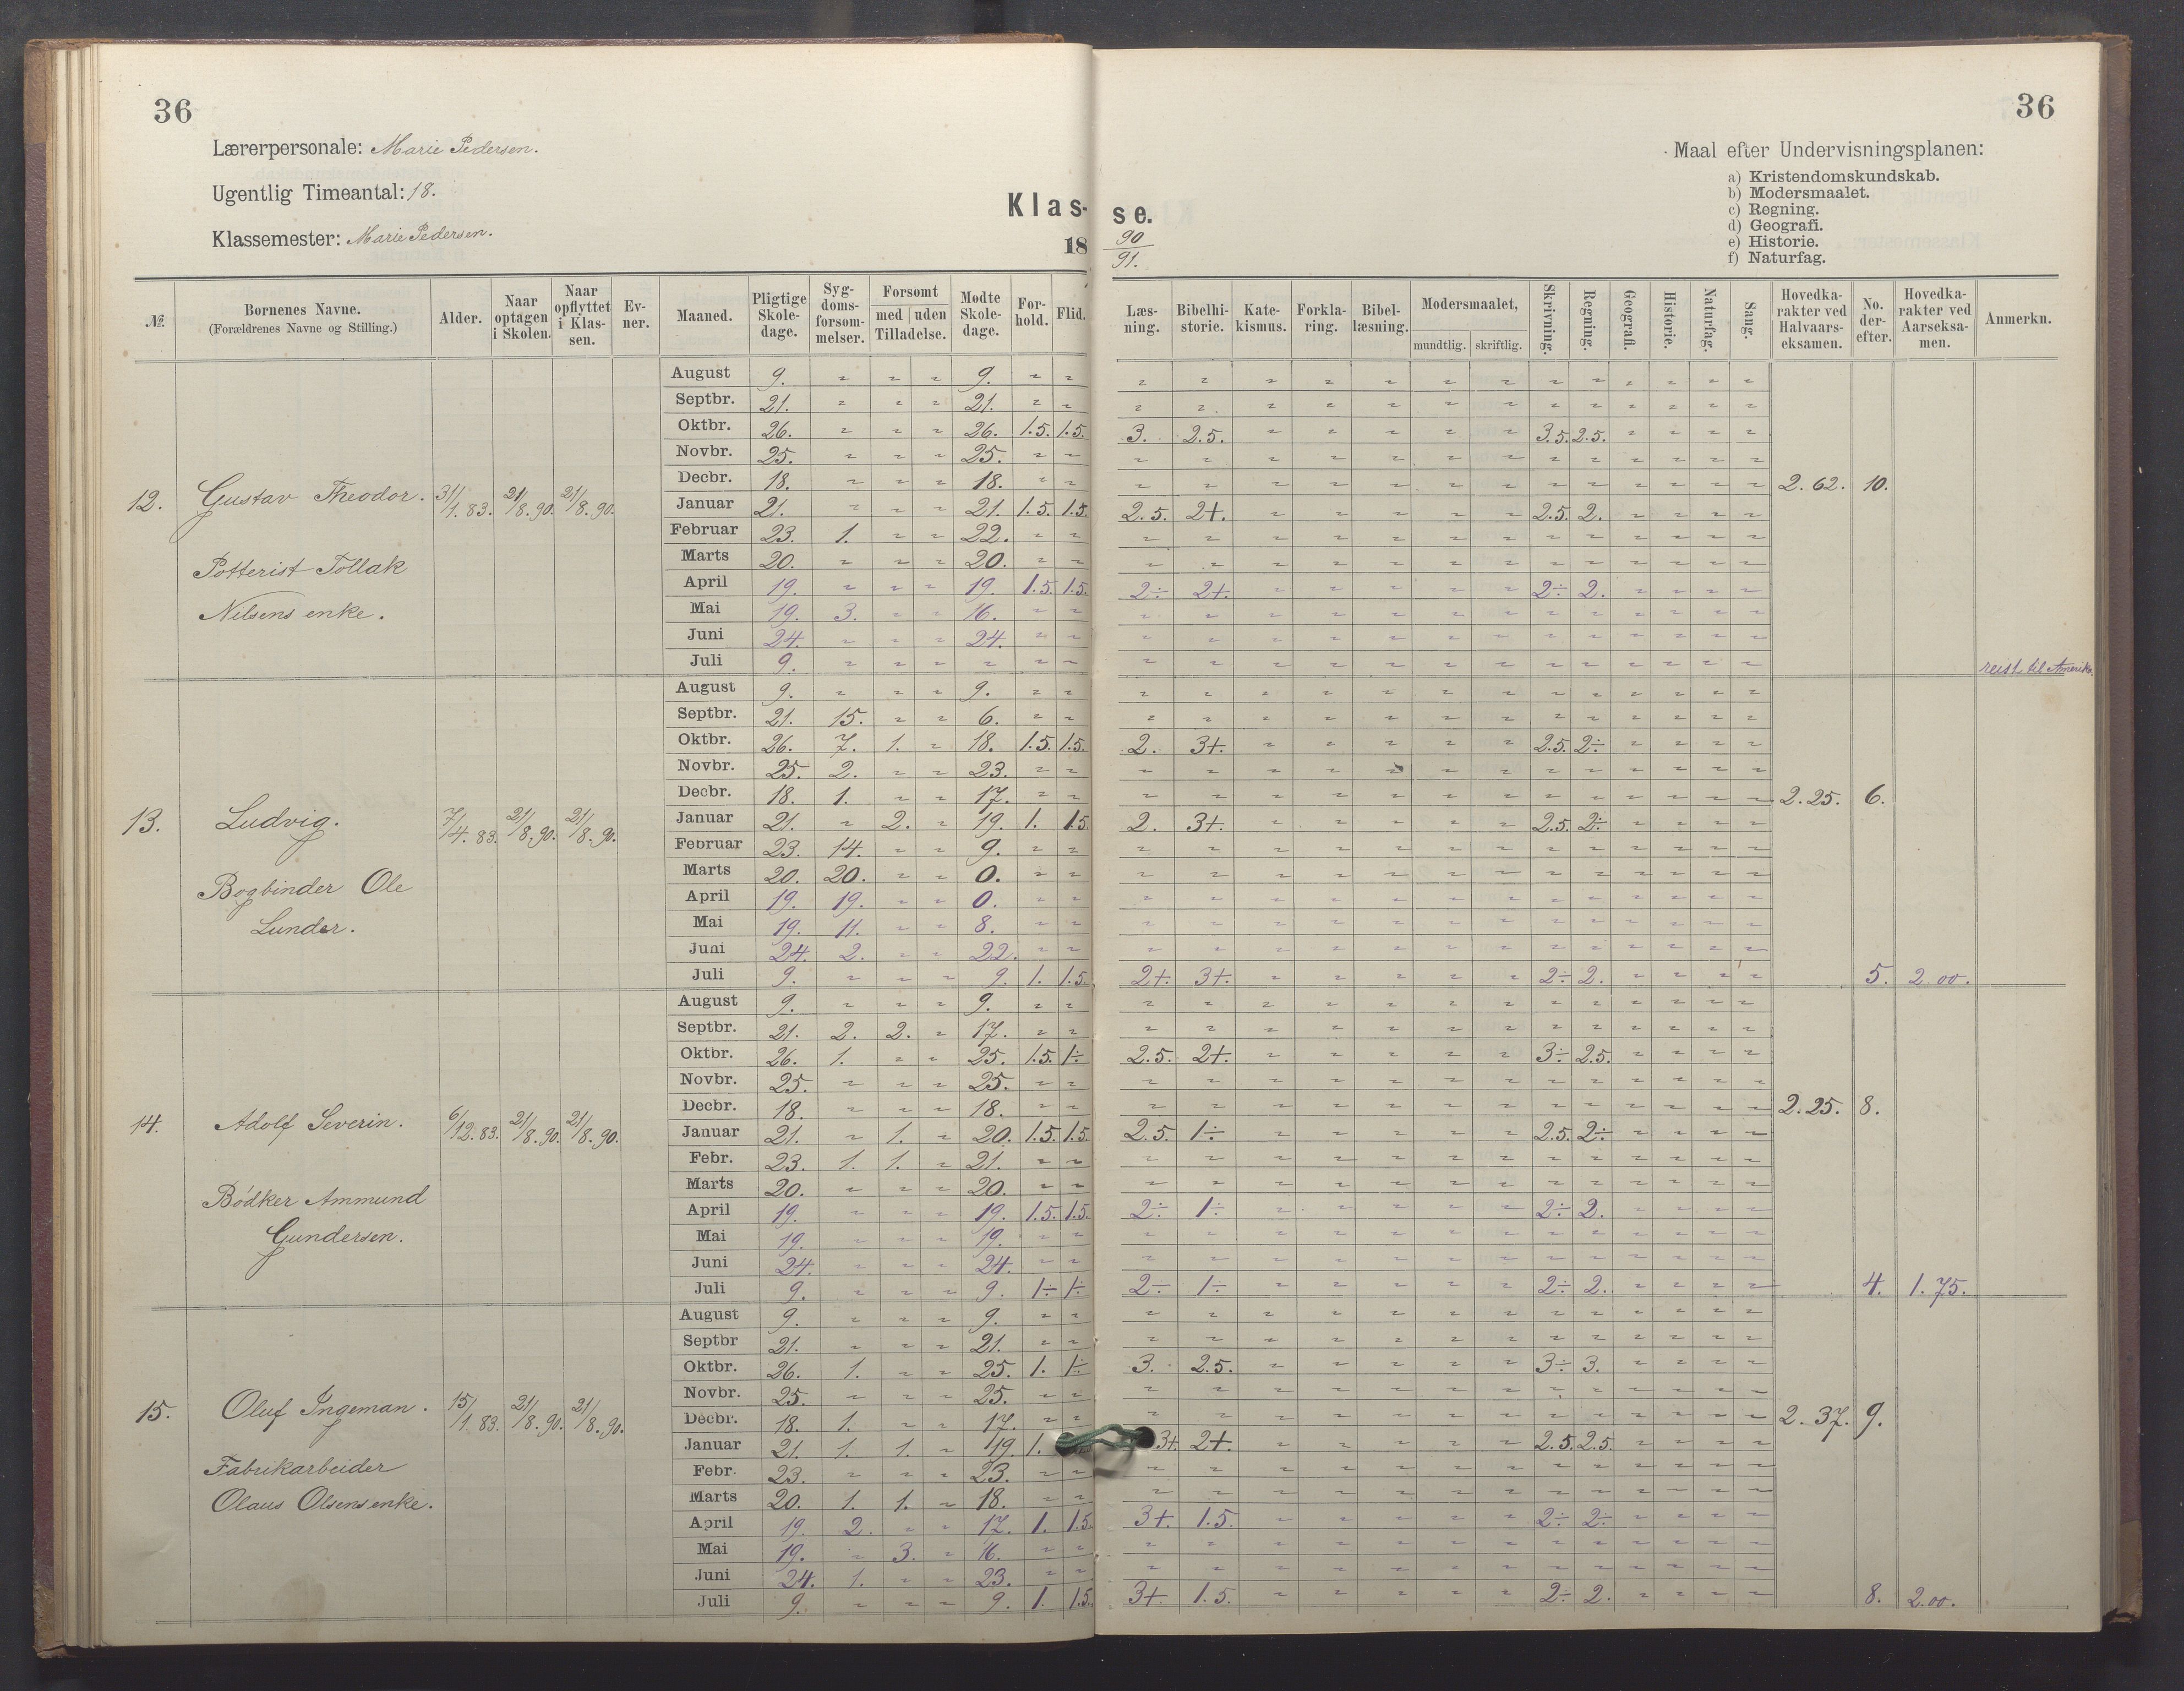 36
36
Lærerpersonale: Marie Pedersen.
Ugentlig Timeantal: 18.
Klassemester: Marie Pedersen.
Klasse.
18 90/91.
Maal efter Undervisningsplanen:
a) Kristendomskundskab.
b) Modersmaalet.
c) Regning.
d) Geografi.
e) Historie.
f) Naturfag.
№ | Børnenes Navne. (Forældrenes Navne og Stilling.) | Alder. | Naar optagen i Skolen. | Naar opflyttet i Klassen. | Evner. | Maaned. | Pligtige Skoledage. | Sygdomsforsømmelser. | Forsømt med Tilladelse. | uden Tilladelse. | Mødte Skoledage. | Forhold. | Flid. | Læsning. | Bibelhistorie. | Katekismus. | Forklaring. | Bibellæsning. | Modersmaalet, mundtlig. | skriftlig. | Skrivning. | Regning. | Geografi. | Historie. | Naturfag. | Sang. | Hovedkarakter ved Halvaarseksamen. | No. derefter. | Hovedkarakter ved Aarseksamen. | Anmerkn.
12. Gustav Theodor. 31/1.83. 21/8.90. 21/8.90.
Potterist Tollak
Nilsens enke.
August 9. " " " 9. " "
Septbr. 21. " " " 21. " "
Oktbr. 26. " " " 26. 1.5. 1.5. 3. 2.5. " " " " " 3.5. 2.5. " " " "
Novbr. 25. " " " 25. " "
Decbr. 18. " " " 18. " " 2.62. 10.
Januar 21. " " " 21. 1.5. 1.5. 2.5. 2+. " " " " " 2.5. 2. " " " "
Februar 23. 1. " " 22. " "
Marts 20. " " " 20. " "
April 19. " " " 19. 1.5. 1.5. 2÷ 2+. " " " " " 2÷ 2. " " " "
Mai 19. 3. " " 16. " "
Juni 24. " " " 24. " "
Juli 9. " " " " " " reist til Amerika.
13. Ludvig. 7/4.83. 21/8.90. 21/8.90.
Bogbinder Ole
Lunder.
August 9. " " " 9. " "
Septbr. 21. 15. " " 6. " "
Oktbr. 26. 7. 1. " 18. 1.5. 1.5. 2. 3+. " " " " " 2.5. 2÷ " " " "
Novbr. 25. 2. " " 23. " "
Decbr. 18. 1. " " 17. " " 2.25. 6.
Januar 21. " 2. " 19. 1. 1.5 2. 3+. " " " " " 2.5. 2÷ " " " "
Februar 23. 14. " " 9. " "
Marts 20. 20. " " 0. " "
April 19. 19. " " 0. " "
Mai 19. 11. " " 8. " "
Juni 24. 2. " " 22. " "
Juli 9. " " " 9. 1. 1.5. 2+. 3+. " " " " " 2÷ 2. " " " " 5. 2.00.
14. Adolf Severin. 6/12.83. 21/8.90. 21/8.90.
Bödker Ammund
Gundersen.
August 9. " " " 9. " "
Septbr. 21. 2. 2. " 17. " "
Oktbr. 26. 1. " " 25. 1.5. 1÷ 2.5. 2+. " " " " " 3÷ 2.5. " " " "
Novbr. 25. " " " 25. " "
Decbr. 18. " " " 18. " " 2.25. 8.
Januar 21. " 1. " 20. 1.5. 1.5. 2.5. 1÷ " " " " " 2.5. 2÷ " " " "
Febr. 23. 1. 1. " 21. " "
Marts 20. " " " 20. " "
April 19. " " " 19. 1.5. 1.5. 2÷ 1÷ " " " " " 2÷ 2. " " " "
Mai 19. " " " 19. " "
Juni 24. " " " 24. " "
Juli 9. " " " 9. 1÷ 1÷ 2÷ 1÷ " " " " " 2÷ 2. " " " " 4. 1.75.
15. Oluf Ingeman. 15/1.83. 21/8.90. 21/8.90.
Fabrikarbeider
Olaus Olsens enke.
August 9. " " " 9. " "
Septbr 21. " " " 21. " "
Oktbr. 26. 1. " " 25. 1. 1÷ 3. 2.5. " " " " " 3÷ 3. " " " "
Novbr. 25. " " " 25. " "
Decbr. 18. 1. " " 17. " " 2.37. 9.
Januar 21. 1. 1. " 19. 1. 3+. 2+. " " " " " 2.5. 2.5. " " " "
Febr. 23. " " " 23. " "
Marts 20. 1. 1. " 18. " "
April 19. 2. " " 17. 1. 1.5. 3+. 1.5. " " " " " 2÷ 2÷ " " " "
Mai 19. " 3. " 16. " "
Juni 24. 1. " " 23. " "
Juli 9. " " " 9. 1. 1.5. 3+. 1.5. " " " " " 2÷ 2. " " " " 8. 2.00.